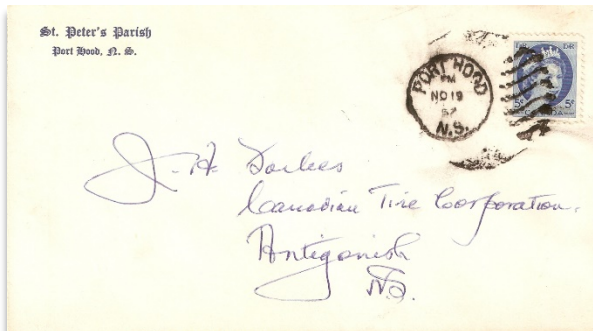 St. Peter's Parish
Port Hood, N. S.
PORT HOOD
PM
NO 19
57
N.S.
5¢ 5¢
J. H.
Canadian Tire Corporation.
Antigonish
N.S.